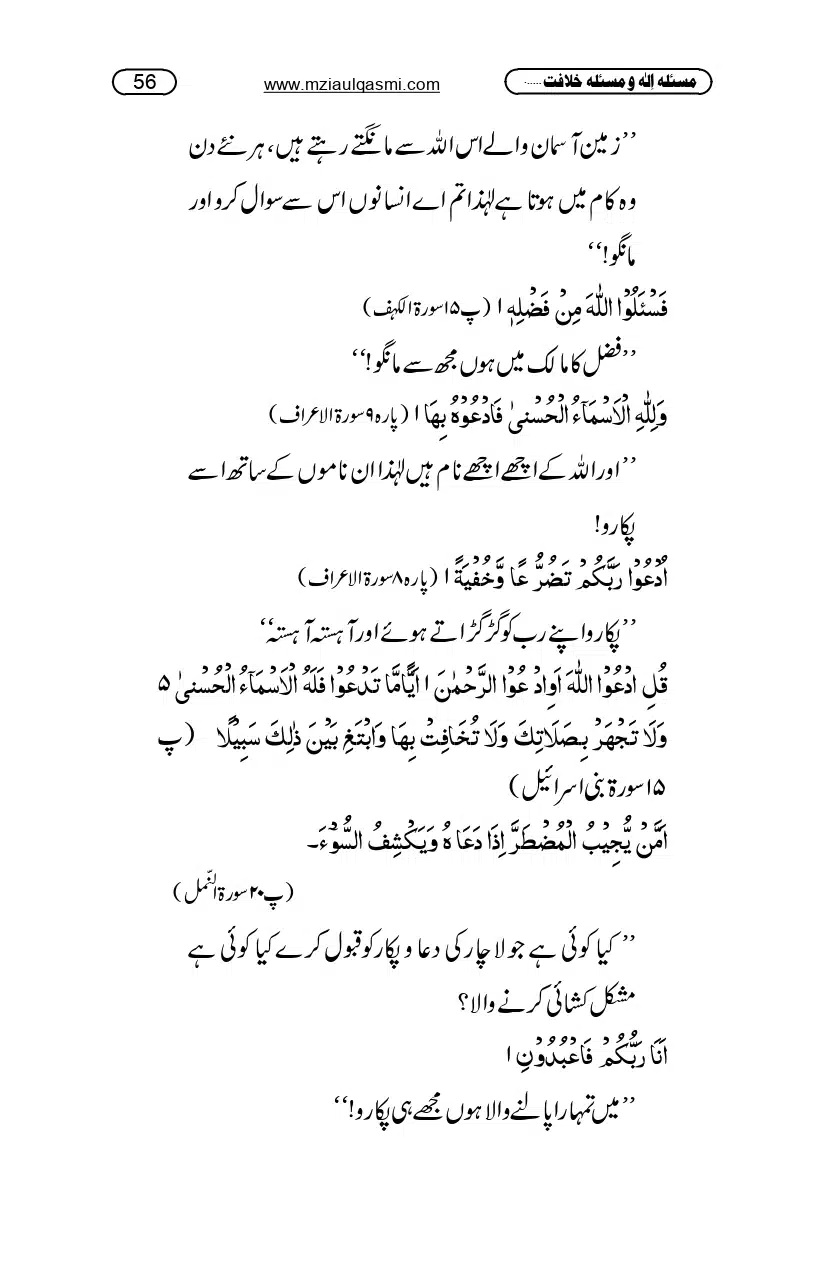 56 www.mziaulqasmi.com مسئلہ اِلٰہ و مسئلہ خلافت......
’’زمین آسمان والے اس اللہ سے مانگتے رہتے ہیں، ہر نئے دن
وہ کام میں ہوتا ہے لہٰذا تم اے انسانوں اس سے سوال کرو اور
مانگو!‘‘
فَسْئَلُوْا اللّٰهَ مِنْ فَضْلِهٖ ا (پ۱۵ سورۃ الکہف)
’’فضل کا مالک میں ہوں مجھ سے مانگو!‘‘
وَلِلّٰهِ الْاَسْمَآءُ الْحُسْنٰى فَادْعُوْهُ بِهَا ا (پارہ ۹ سورۃ الاعراف)
’’اور اللہ کے اچھے اچھے نام ہیں لہٰذا ان ناموں کے ساتھ اسے
پکارو!
اُدْعُوْا رَبَّكُمْ تَضَرُّ عًا وَّخُفْيَةً ا (پارہ ۸ سورۃ الاعراف)
’’پکارو اپنے رب کو گڑگڑاتے ہوئے اور آہستہ آہستہ‘‘
قُلِ ادْعُوْا اللّٰهَ اَوِادْ عُوْا الرَّحْمٰنَ ا اَيًّامَّا تَدْعُوْا فَلَهُ الْاَسْمَآءُ الْحُسْنٰى ۵
وَلَا تَجْهَرْ بِصَلَاتِكَ وَلَا تُخَافِتْ بِهَا وَابْتَغِ بَيْنَ ذٰلِكَ سَبِيْلًا (پ
۱۵ سورۃ بنی اسرائیل)
اَمَّنْ يُّجِيْبُ الْمُضْطَرَّ اِذَا دَعَا هُ وَيَكْشِفُ السُّوْٓءَ۔
(پ ۲۰ سورۃ النّمل)
’’ کیا کوئی ہے جو لاچار کی دعا و پکار کو قبول کرے کیا کوئی ہے
مشکل کشائی کرنے والا؟
اَنَا رَبُّكُمْ فَاعْبُدُوْنِ ا
’’میں تمہارا پالنے والا ہوں مجھے ہی پکارو!‘‘